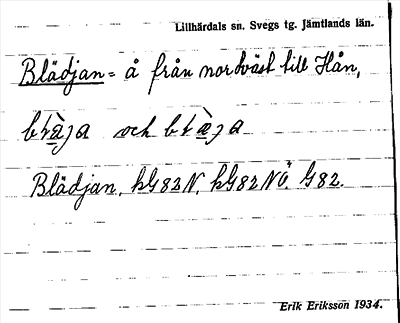 Lillhärdals sn. Svegs tg. Jämtlands län.
Blädjan = å från nordväst till Hån,
och
Blädjan, kG82N, kG82NÖ, G82.
Erik Eriksson 1934.